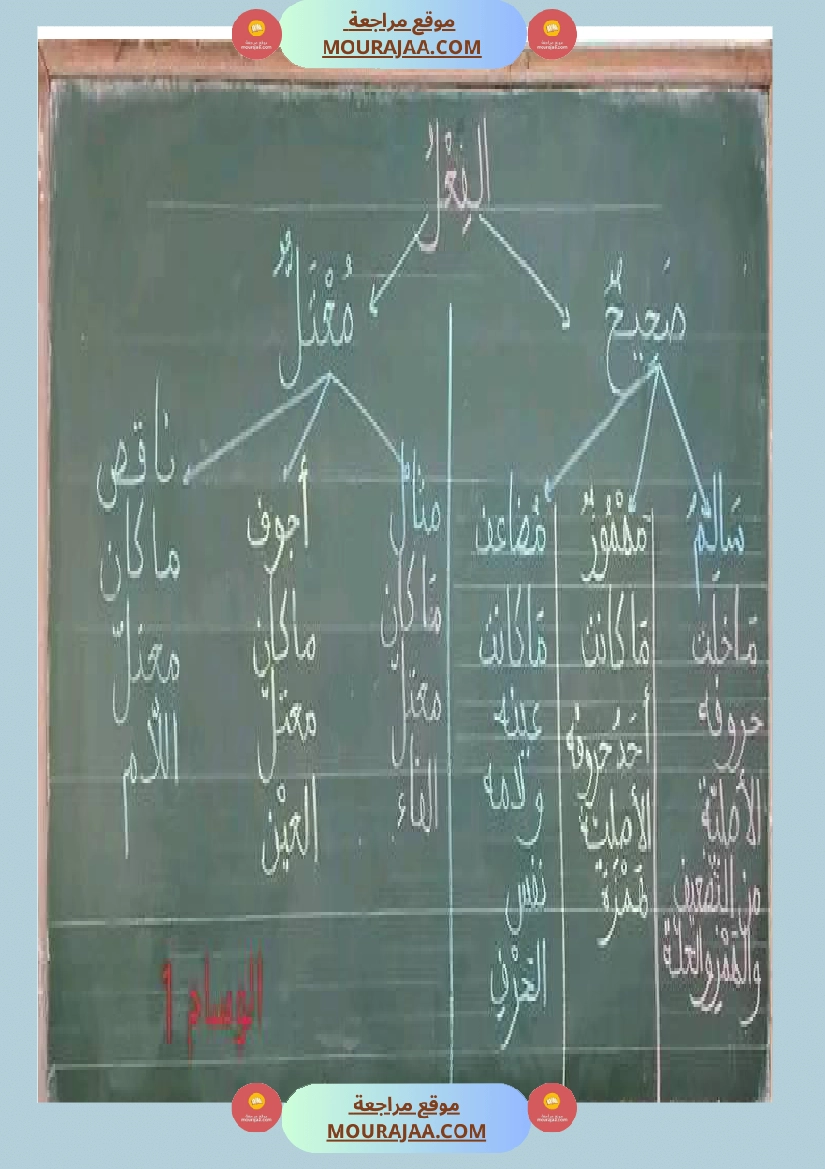 موقع مراجعة
MOURAJAA.COM
الفِعْلُ
صَحِيحٌ
مُعْتَلٌّ
سَالِمٌ
مَا خلت
حروفه
الأصليّة
من التّضعيف
والهَمْزِ والعلّة
مَهْمُوزٌ
مَا كانت
أَحَدُ حروفِه
الأصليّة
هَمْزَة
مُضاعف
مَا كانت
عينه
ولامه
نفس
الحَرْفِ
مثال
مَا كان
معتلّ
الفاء
أجوف
ما كان
معتلّ
العيْن
ناقص
ما كان
معتلّ
اللّام
الوسام 1
موقع مراجعة
MOURAJAA.COM